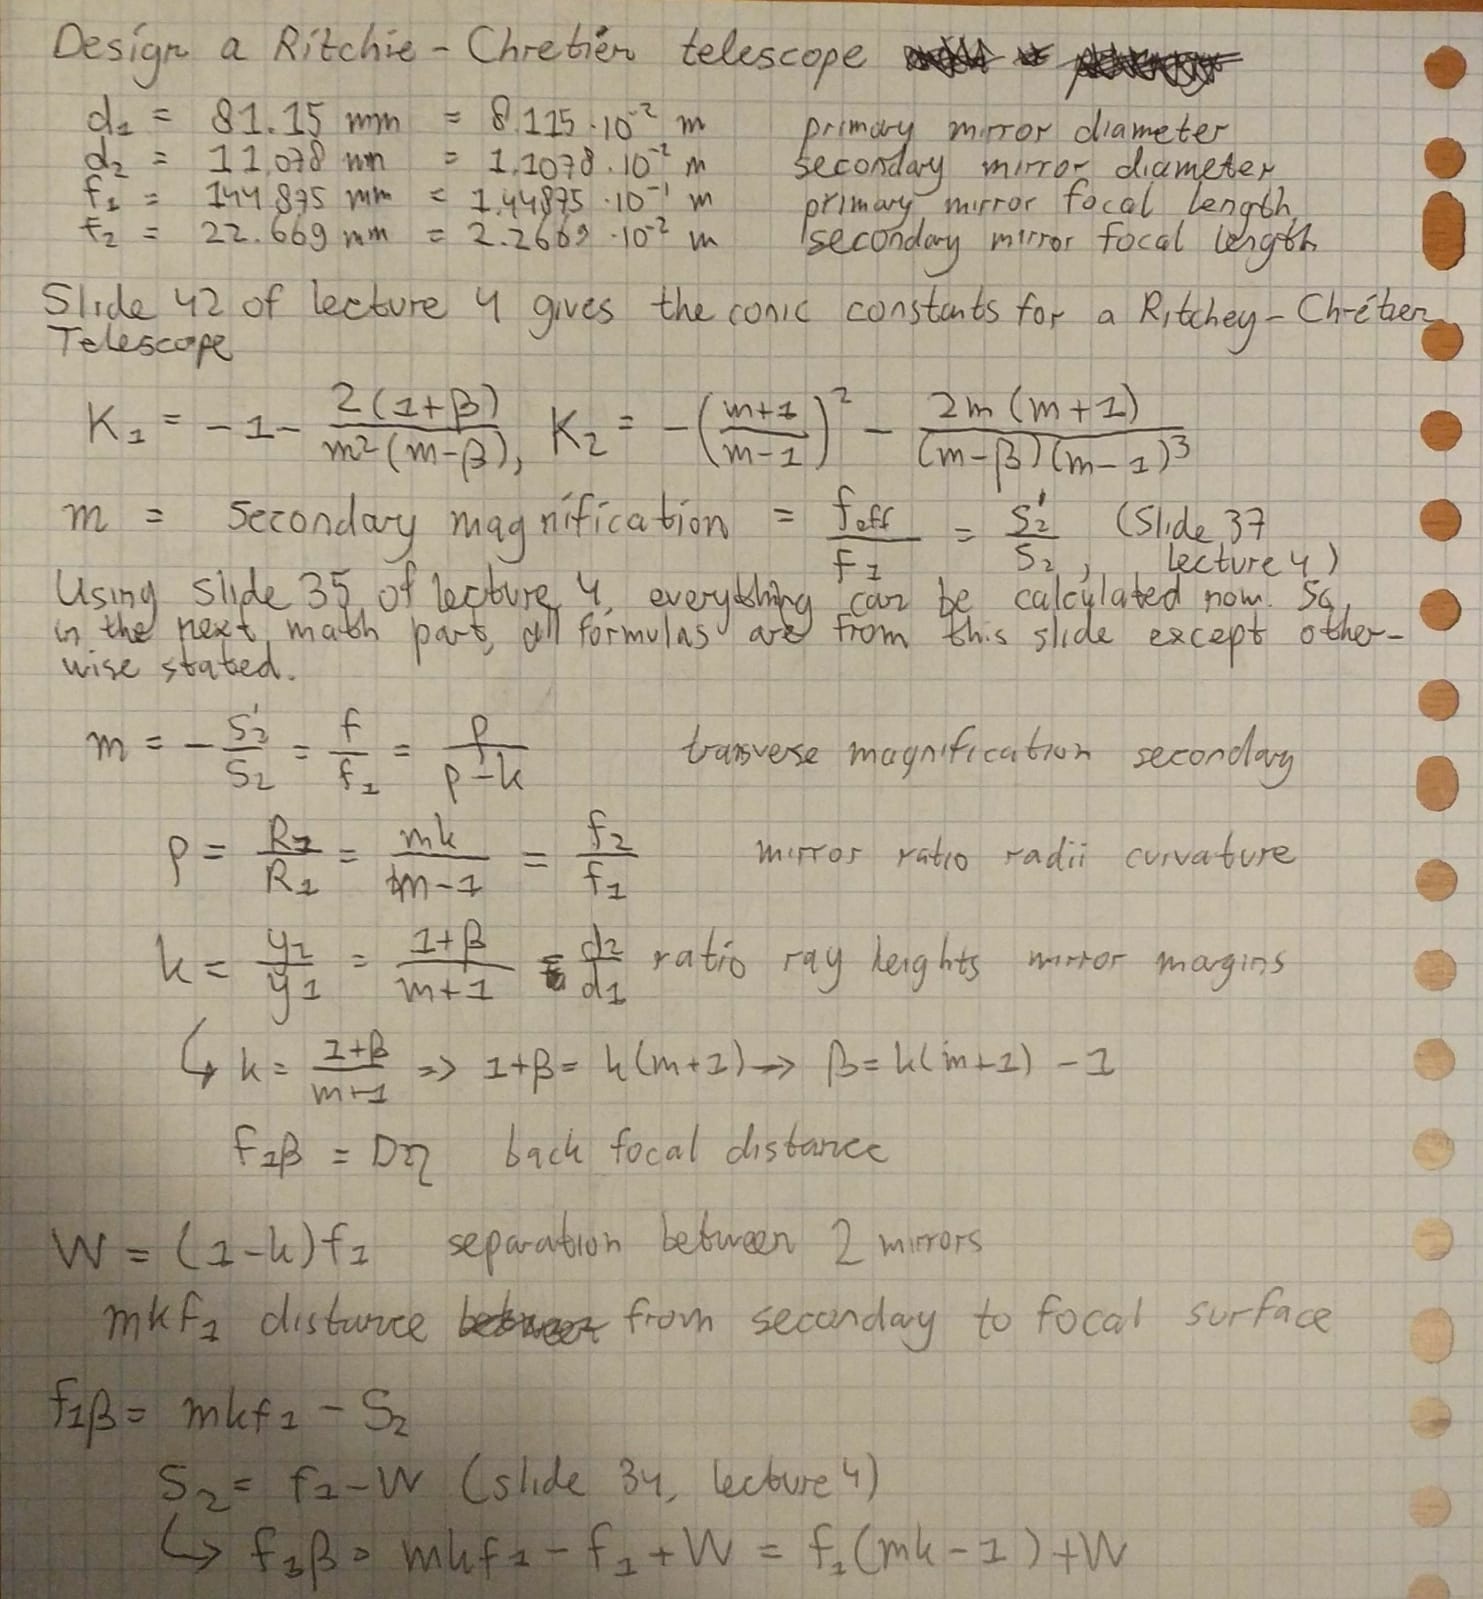 Design a Ritchie - Chretien telescope
d₁ = 81.15 mm = 8.115·10⁻² m primary mirror diameter
d₂ = 11,078 mm = 1.1078·10⁻² m secondary mirror diameter
f₁ = 144,875 mm = 1.44875·10⁻¹ m primary mirror focal length
f₂ = 22.669 mm = 2.2669·10⁻² m secondary mirror focal length
Slide 42 of lecture 4 gives the conic constants for a Ritchey - Chrétien
Telescope
K₁ = -1 - 2(1+β) / m²(m-β), K₂ = -((m+1)/(m-1))² - 2m(m+1) / (m-β)(m-1)³
m = secondary magnification = f_eff / f₁ = S₂' / S₂, (Slide 37
lecture 4)
Using slide 35 of lecture 4, everything can be calculated now. So,
in the next math part, all formulas are from this slide except other-
wise stated.
m = - S₂' / S₂ = f / f₁ = ρ / (ρ-k) tranverse magnification secondary
ρ = R₂ / R₁ = mk / (m-1) = f₂ / f₁ mirror ratio radii curvature
k = y₂ / y₁ = (1+β) / (m+1) = d₂ / d₁ ratio ray heights mirror margins
↳ k = (1+β) / (m+1) => 1+β = k(m+1) → β = k(m+1) - 1
f₁β = Dη back focal distance
W = (1-k)f₁ separation between 2 mirrors
mkf₁ distance from seconday to focal surface
f₁β = mkf₁ - S₂
S₂ = f₁ - W (slide 34, lecture 4)
↳ f₁β = mkf₁ - f₁ + W = f₁(mk-1) + W